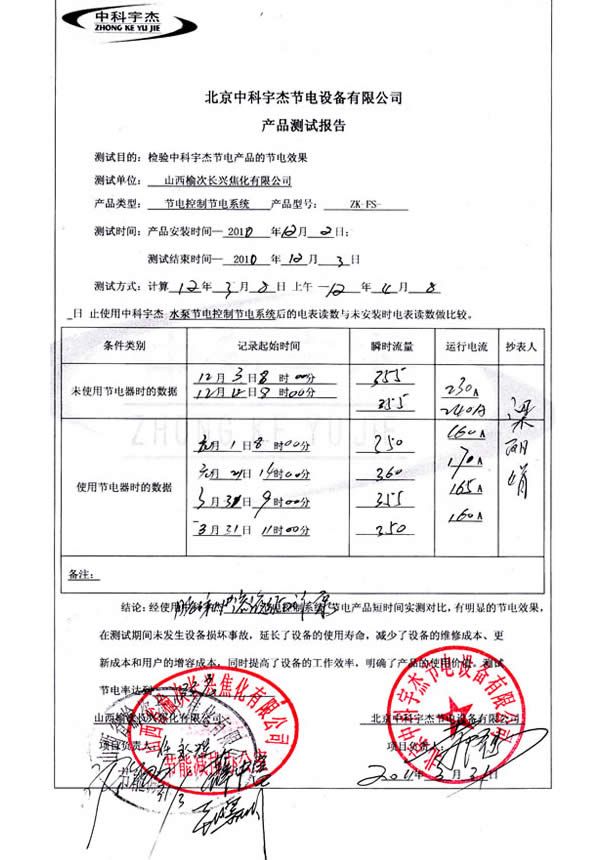 中科宇杰
ZHONG KE YU JIE
北京中科宇杰节电设备有限公司
产品测试报告
测试目的：检验中科宇杰节电产品的节电效果
测试单位：山西榆次长兴焦化有限公司
产品类型：节电控制节电系统 产品型号：ZK-FS-
测试时间：产品安装时间— 2010 年12月2日；
测试结束时间— 2010 年12月3日
测试方式：计算12年3月8日 上午 —12年4月8
日 止使用中科宇杰 水泵节电控制节电系统后的电表读数与未安装时电表读数做比较。
条件类别 记录起始时间 瞬时流量 运行电流 抄表人
未使用节电器时的数据
12月3日8时00分 355 230A
12月4日8时00分 355 240A
使用节电器时的数据
元月1日8时00分 350 160A
元月21日14时00分 360 170A
3月31日9时00分 355 165A
3月31日11时00分 350 160A
梁丽娟
备注：
结论：经使用 控制系统 节电产品短时间实测对比，有明显的节电效果，
在测试期间未发生设备损坏事故，延长了设备的使用寿命，减少了设备的维修成本、更
新成本和用户的增容成本，同时提高了设备的工作效率，明确了产品的使用价值。测试
节电率达到
山西榆次长兴焦化有限公司 北京中科宇杰节电设备有限公司
项目负责人： 项目负责人：
2011年3月31日